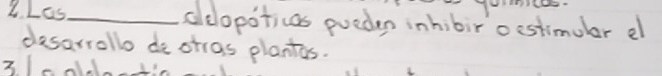 químicas.
2. Las ________ alelopáticas pueden inhibir o estimular el
desarrollo de otras plantas.
3. La